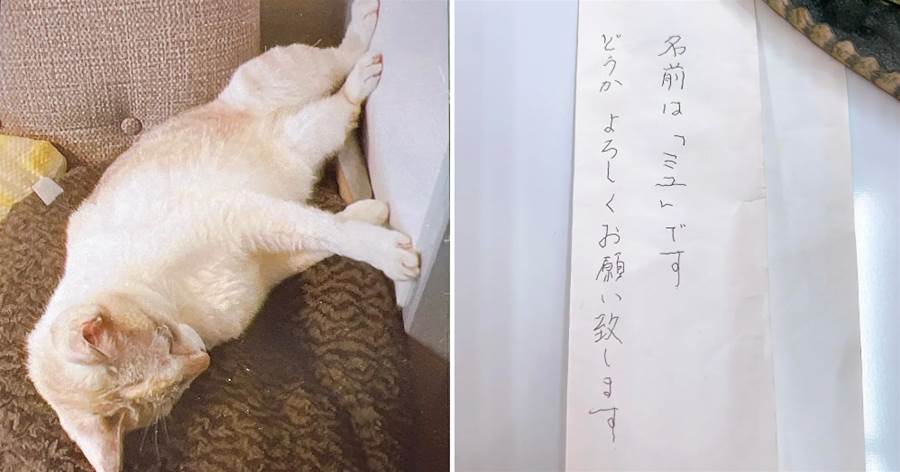 名前は「ミュー」です
どうか よろしくお願い致します